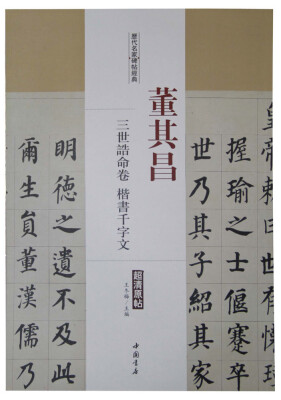 歷代名家碑帖經典
董其昌
三世誥命卷 楷書千字文
超清原帖
王冬梅 主編
中國書店
握瑜之士偃蹇卒
世乃其子紹其
明德之遺不及此
爾生員董漢儒乃